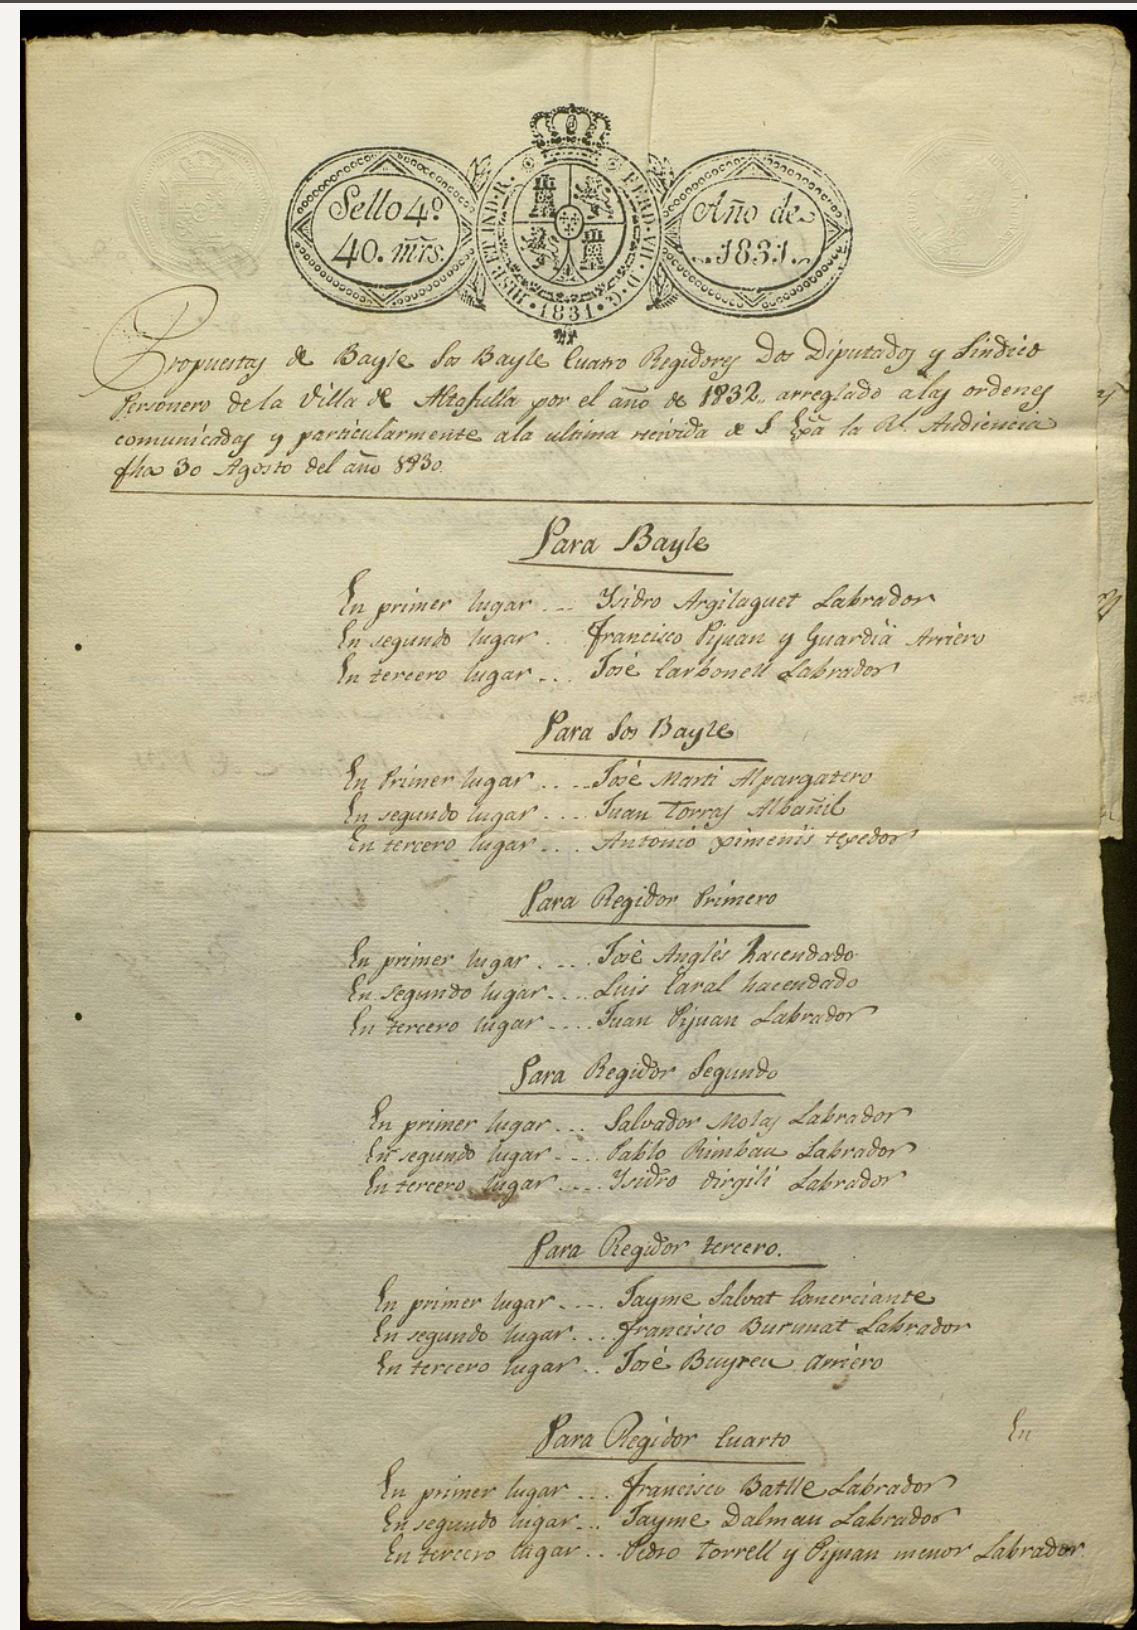 Sello 4º
40. mrs.
HISP. ET IND. R. FERD. VII. D. G. 1831.
Año de
1831.
Propuestas de Bayle Sos Bayle Cuatro Regidores Dos Diputados y Sindico
Personero de la Villa de Altafulla por el año de 1832,, arreglado a las ordenes
comunicadas y particularmente a la ultima recivida de S. Exª la Rl. Audiencia
fha 30 Agosto del año 1830.
Para Bayle
En primer lugar ... Ysidro Argilaguet Labrador
En segundo lugar . Francisco Pijuan y Guardia Arriero
En tercero lugar ... José Carbonell Labrador
Para Sos Bayle
En Primer lugar .... José Marti Alpargatero
En segundo lugar .... Juan Torras Albañil
En tercero lugar ... Antonio Ximenis texedor
Para Regidor Primero
En primer lugar .... José Anglés hacendado
En segundo lugar .... Luis Caral hacendado
En tercero lugar .... Juan Pijuan Labrador
Para Regidor Segundo
En primer lugar ... Salvador Molas Labrador
En segundo lugar .... Pablo Rimbau Labrador
En tercero lugar .... Ysidro Virgili Labrador
Para Regidor tercero.
En primer lugar .... Jayme Salvat Comerciante
En segundo lugar .... Francisco Burunat Labrador
En tercero lugar .. José Buyreu Arriero
Para Regidor Cuarto
En
En primer lugar ... Francisco Batlle Labrador
En segundo lugar ... Jayme Dalmau Labrador
En tercero lugar ... Pedro Torrell y Pijuan menor Labrador